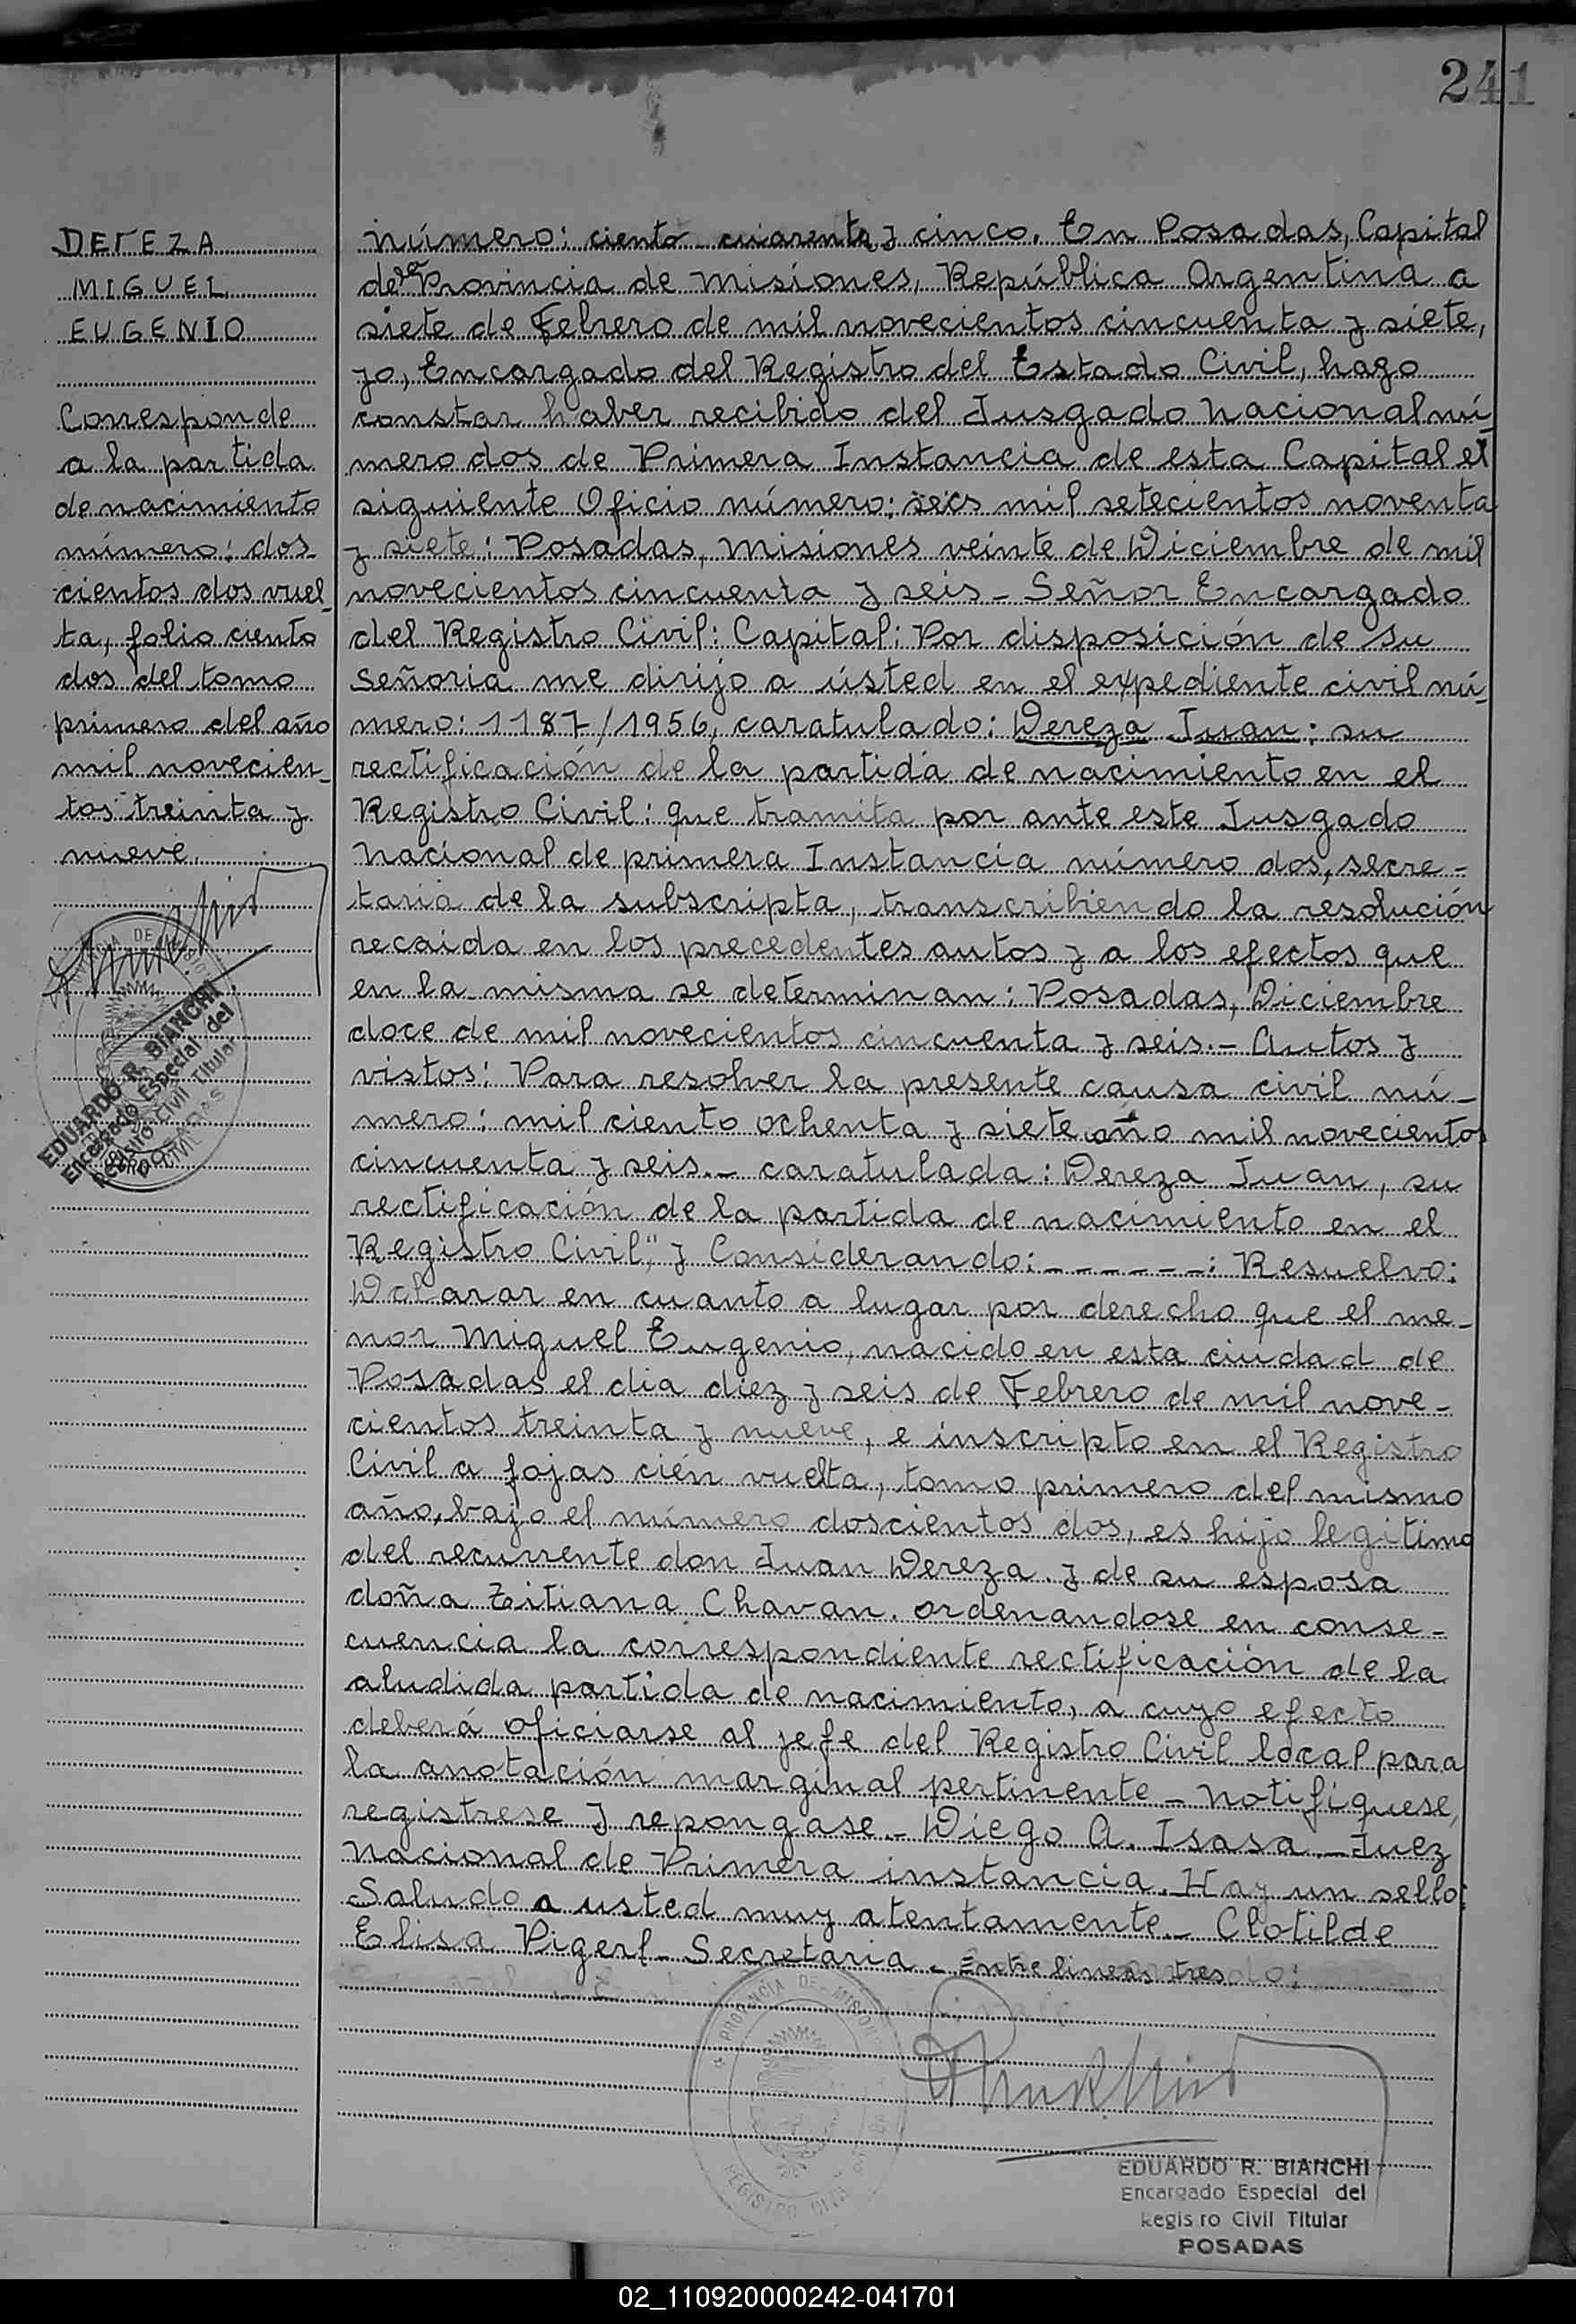 241
DEREZA
MIGUEL
EUGENIO
Corresponde
a la partida
de nacimiento
número: dos-
cientos dos vuel-
ta, folio ciento
dos del tomo
primero del año
mil novecien-
tos treinta y
nueve.
EDUARDO R. BIANCHI
Encargado Especial del
Registro Civil Titular
POSADAS
número: ciento cuarenta y cinco. En Posadas, Capital
de la Provincia de Misiones, República Argentina a
siete de Febrero de mil novecientos cincuenta y siete,
yo, Encargado del Registro del Estado Civil, hago
constar haber recibido del Jusgado Nacional nú-
mero dos de Primera Instancia de esta Capital el
siguiente Oficio número: seis mil setecientos noventa
y siete: Posadas, Misiones veinte de Diciembre de mil
novecientos cincuenta y seis - Señor Encargado
del Registro Civil: Capital: Por disposición de su
Señoria me dirijo a usted en el expediente civil nú-
mero: 1187/1956, caratulado: Dereza Juan: su
rectificación de la partida de nacimiento en el
Registro Civil: que tramita por ante este Jusgado
Nacional de primera Instancia número dos, secre-
taria de la subscripta, transcribiendo la resolución
recaida en los precedentes autos y a los efectos que
en la misma se determinan: Posadas, Diciembre
doce de mil novecientos cincuenta y seis.- Autos y
vistos: Para resolver la presente causa civil nú-
mero: mil ciento ochenta y siete año mil novecientos
cincuenta y seis.- caratulada: Dereza Juan, su
rectificación de la partida de nacimiento en el
Registro Civil", y Considerando: ------: Resuelvo:
Declarar en cuanto a lugar por derecho que el me-
nor Miguel Eugenio, nacido en esta ciudad de
Posadas el dia diez y seis de Febrero de mil nove-
cientos treinta y nueve, e inscripto en el Registro
Civil a fojas cién vuelta, tomo primero del mismo
año, bajo el número doscientos dos, es hijo legitimo
del recurrente don Juan Dereza. y de su esposa
doña Zitiana Chavan. ordenandose en conse-
cuencia la correspondiente rectificación de la
aludida partida de nacimiento, a cuyo efecto
deberá oficiarse al jefe del Registro Civil local para
la anotación marginal pertinente - Notifiquese,
registrese y repongase.- Diego A. Isasa - Juez
Nacional de Primera instancia. Hay un sello:
Saludo a usted muy atentamente.- Clotilde
Elisa Pigerl - Secretaria. - Entre lineas tres
PROVINCIA DE MISIONES
REGISTRO CIVIL
EDUARDO R. BIANCHI
Encargado Especial del
Regis ro Civil Titular
POSADAS
02_110920000242-041701